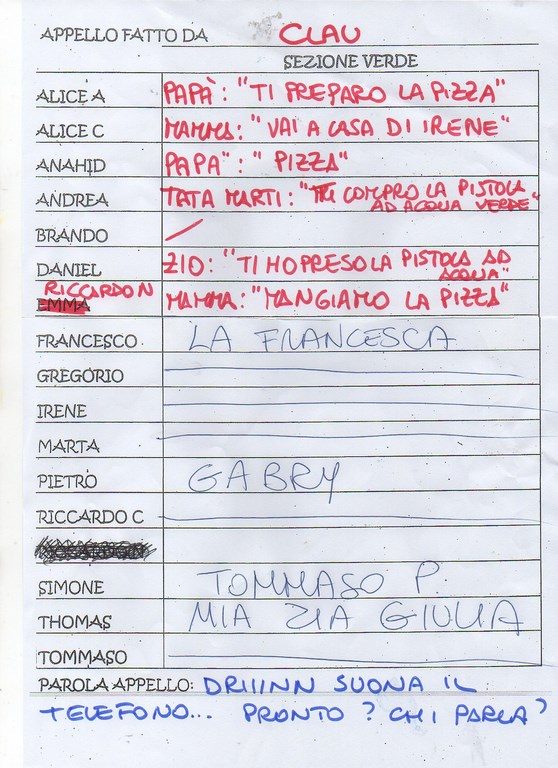 APPELLO FATTO DA CLAU
SEZIONE VERDE
ALICE A PAPÀ: "TI PREPARO LA PIZZA"
ALICE C MAMMA: "VAI A CASA DI IRENE"
ANAHID PAPA": "PIZZA"
ANDREA TATA MARTI: "TI COMPRO LA PISTOLA
AD ACQUA VERDE"
BRANDO
DANIEL ZIO: "TI HO PRESO LA PISTOLA AD
ACQUA"
RICCARDO N
EMMA MAMMA: "MANGIAMO LA PIZZA"
FRANCESCO LA FRANCESCA
GREGORIO
IRENE
MARTA
PIETRO GABRY
RICCARDO C
SIMONE TOMMASO P.
THOMAS MIA ZIA GIULIA
TOMMASO
PAROLA APPELLO: DRIIINN SUONA IL
TELEFONO... PRONTO? CHI PARLA?